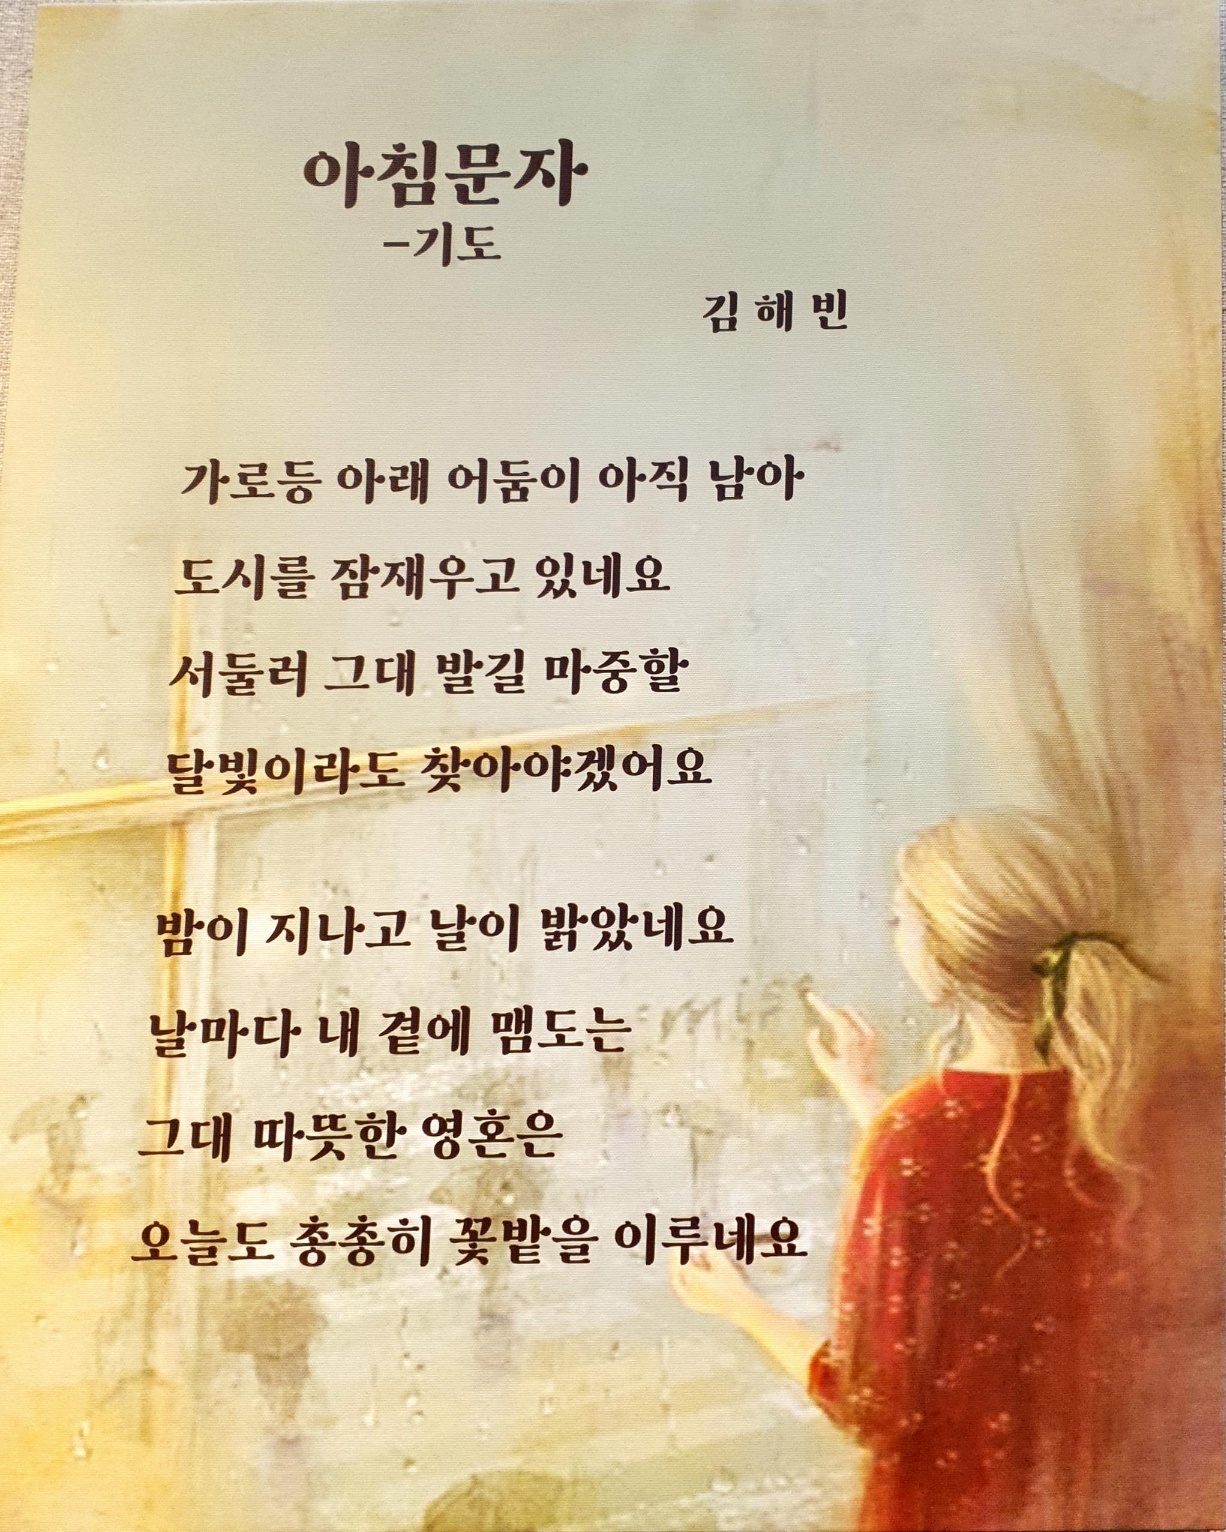 아침문자
-기도
김 해 빈
가로등 아래 어둠이 아직 남아
도시를 잠재우고 있네요
서둘러 그대 발길 마중할
달빛이라도 찾아야겠어요
밤이 지나고 날이 밝았네요
날마다 내 곁에 맴도는
그대 따뜻한 영혼은
오늘도 총총히 꽃밭을 이루네요
miss